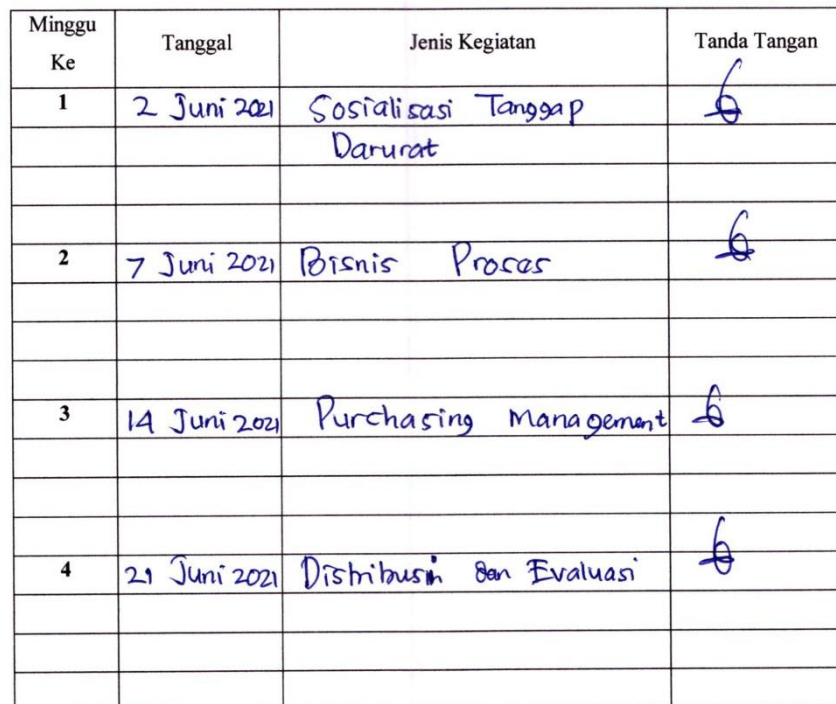 Minggu Ke Tanggal Jenis Kegiatan Tanda Tangan
1 2 Juni 2021 Sosialisasi Tanggap
Darurat
2 7 Juni 2021 Bisnis Proses
3 14 Juni 2021 Purchasing Management
4 21 Juni 2021 Distribusi dan Evaluasi